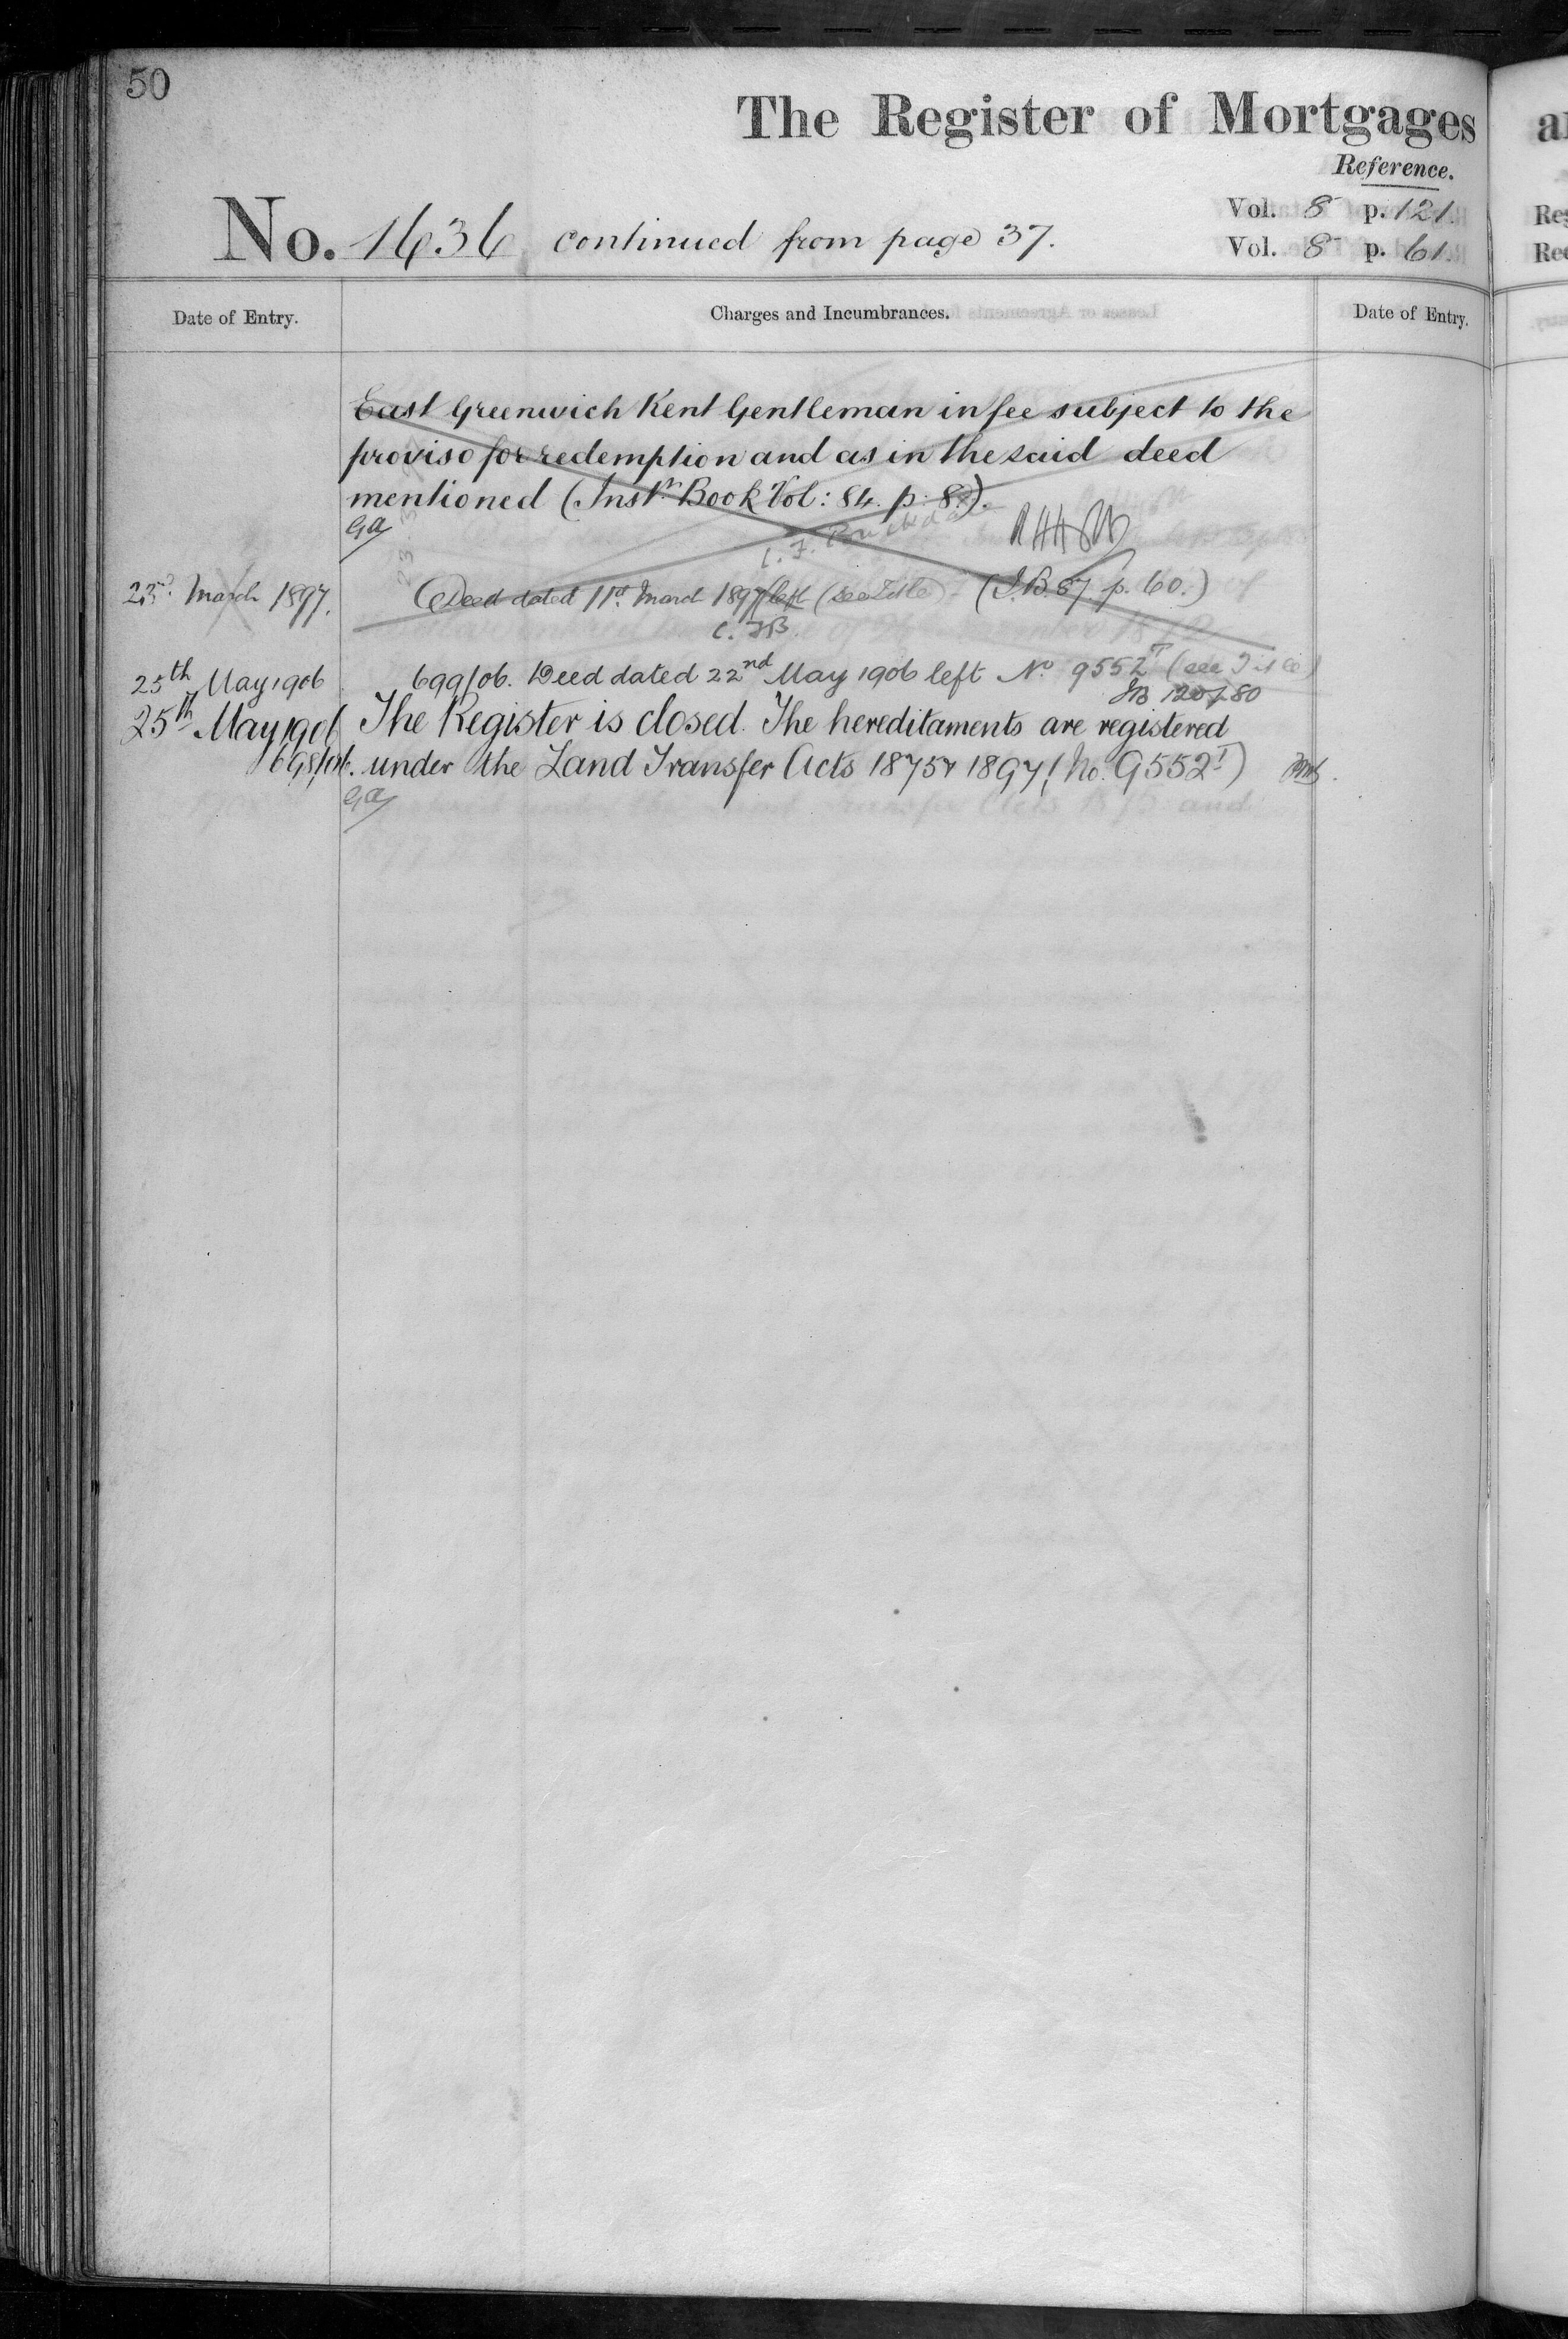 50
The Register of Mortgages
Reference.
Vol. 8 p. 121.
No. 1636 continued from page 37.
Vol. 8 p. 61.
Date of Entry.
Charges and Incumbrances.
Date of Entry.
East Greenwich Kent Gentleman in fee subject to the
proviso for redemption and as in the said deed
mentioned (Inst. Book Vol: 84. p. 8.).
Ga
23rd March 1897.
Deed dated 11th March 1897 left (see Title) (I.B. 87. p. 60.)
25th May 1906
699/06. Deed dated 22nd May 1906 left No. 9552 (see Title)
25th May 1906
The Register is closed. The hereditaments are registered
698/06.
under the Land Transfer Acts 1875 & 1897 (No. 9552)
Ga
Reg